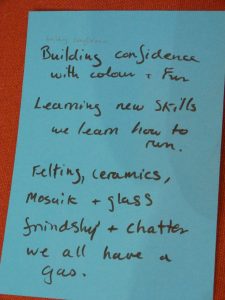 Building confidence
with colour + Fun
Learning new skills
we learn how to
run.
Felting, ceramics,
Mosaik + glass
friendship + chatter
we all have a
gas.